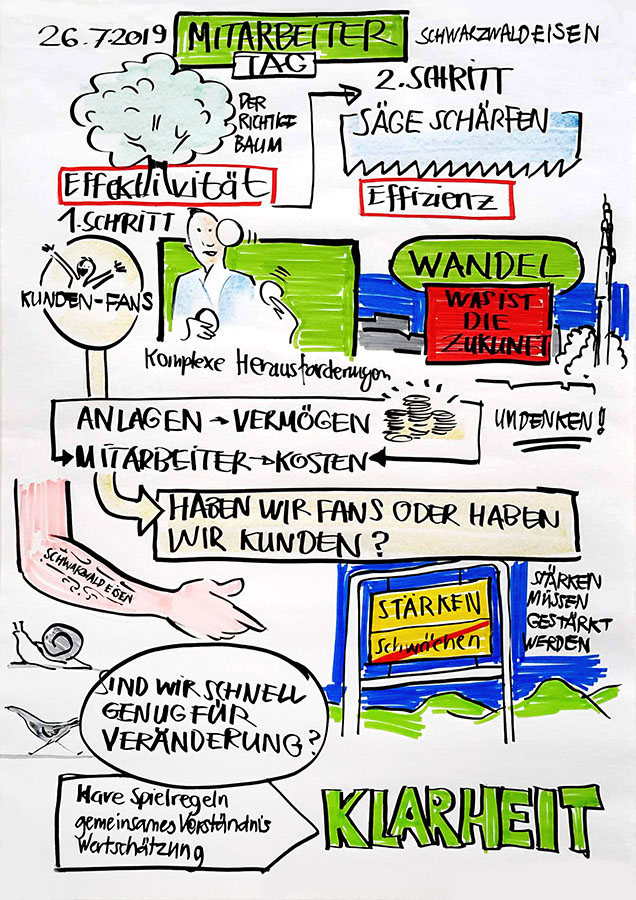 26.7.2019
MITARBEITER
TAG
SCHWARZWALDEISEN
DER
RICHTIGE
BAUM
2. SCHRITT
SÄGE SCHÄRFEN
Effektivität
Effizienz
1. SCHRITT
KUNDEN-FANS
Komplexe Herausforderungen
WANDEL
WAS IST
DIE
ZUKUNFT
ANLAGEN → VERMÖGEN
MITARBEITER → KOSTEN
UMDENKEN!
HABEN WIR FANS ODER HABEN
WIR KUNDEN?
SCHWARZWALDEISEN
STÄRKEN
Schwächen
STÄRKEN
MÜSSEN
GESTÄRKT
WERDEN
SIND WIR SCHNELL
GENUG FÜR
VERÄNDERUNG?
Klare Spielregeln
gemeinsames Verständnis
Wertschätzung
KLARHEIT